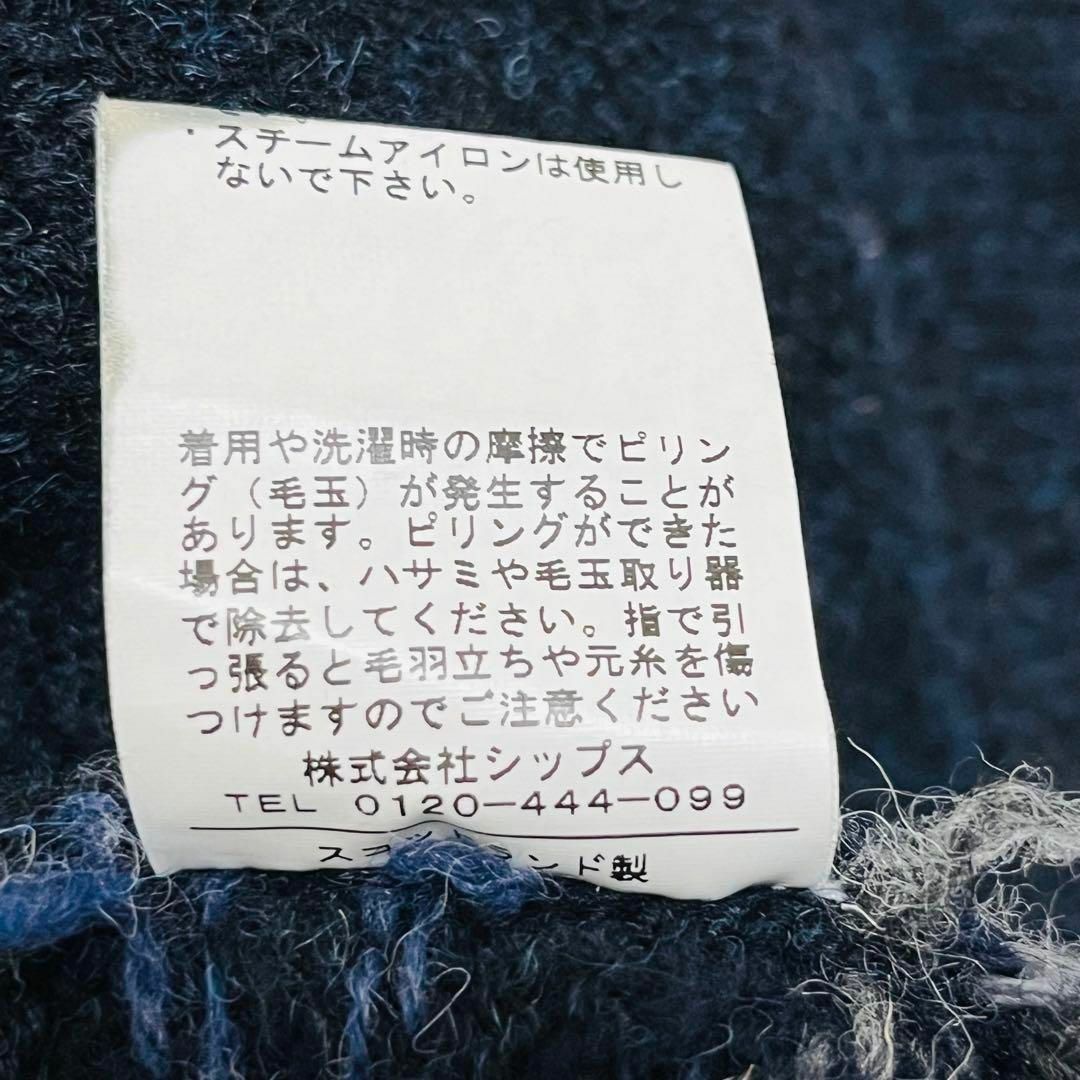 ・スチームアイロンは使用し
ないで下さい。
着用や洗濯時の摩擦でピリン
グ（毛玉）が発生することが
あります。ピリングができた
場合は、ハサミや毛玉取り器
で除去してください。指で引
っ張ると毛羽立ちや元糸を傷
つけますのでご注意ください
株式会社シップス
TEL 0120-444-099
スコットランド製